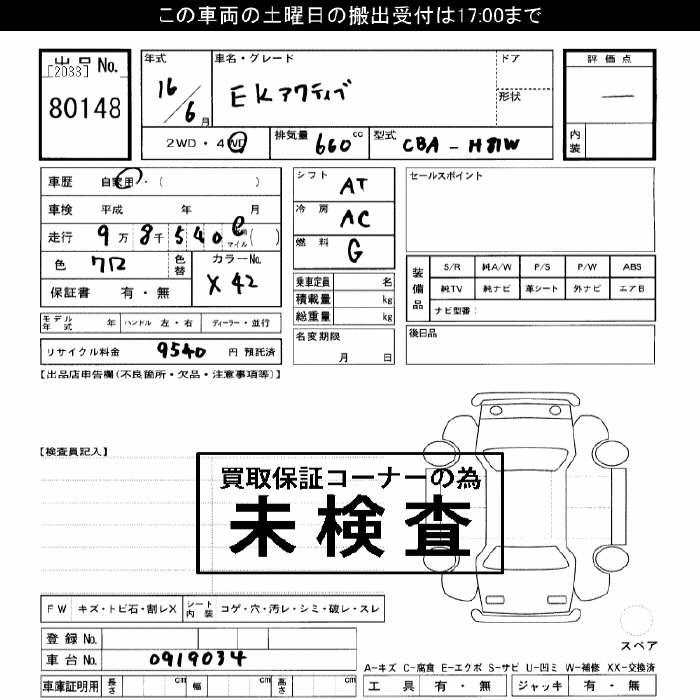 この車両の土曜日の搬出受付は17:00まで
出品 No.
[2033]
80148
年式
16/6月
車名・グレード
EKアクティブ
ドア
形状
評価点
―
内装
2WD・4WD
排気量 660 cc
型式 CBA-H81W
車歴 自家用・( )
車検 平成 年 月
走行 9万8千540 マイル( )
色 クロ
色替
カラーNo. X42
保証書 有・無
シフト AT
冷房 AC
燃料 G
乗車定員 名
積載量 kg
総重量 kg
名変期限
月 日
セールスポイント
装備品
S/R 純A/W P/S P/W ABS
純TV 純ナビ 革シート 外ナビ エアB
ナビ型番:
後日品
モデル年式 年 ハンドル 左・右 ディーラー・並行
リサイクル料金 9540 円 預託済
【出品店申告欄(不良箇所・欠品・注意事項等)】
【検査員記入】
買取保証コーナーの為
未検査
FW キズ・トビ石・割レX シート内装 コゲ・穴・汚レ・シミ・破レ・スレ
登録 No.
車台 No. 0919034
車庫証明用 長さ cm 幅 cm 高さ cm
スペア
A-キズ C-腐食 E-エクボ S-サビ U-凹ミ W-補修 XX-交換済
工具 有・無 ジャッキ 有・無